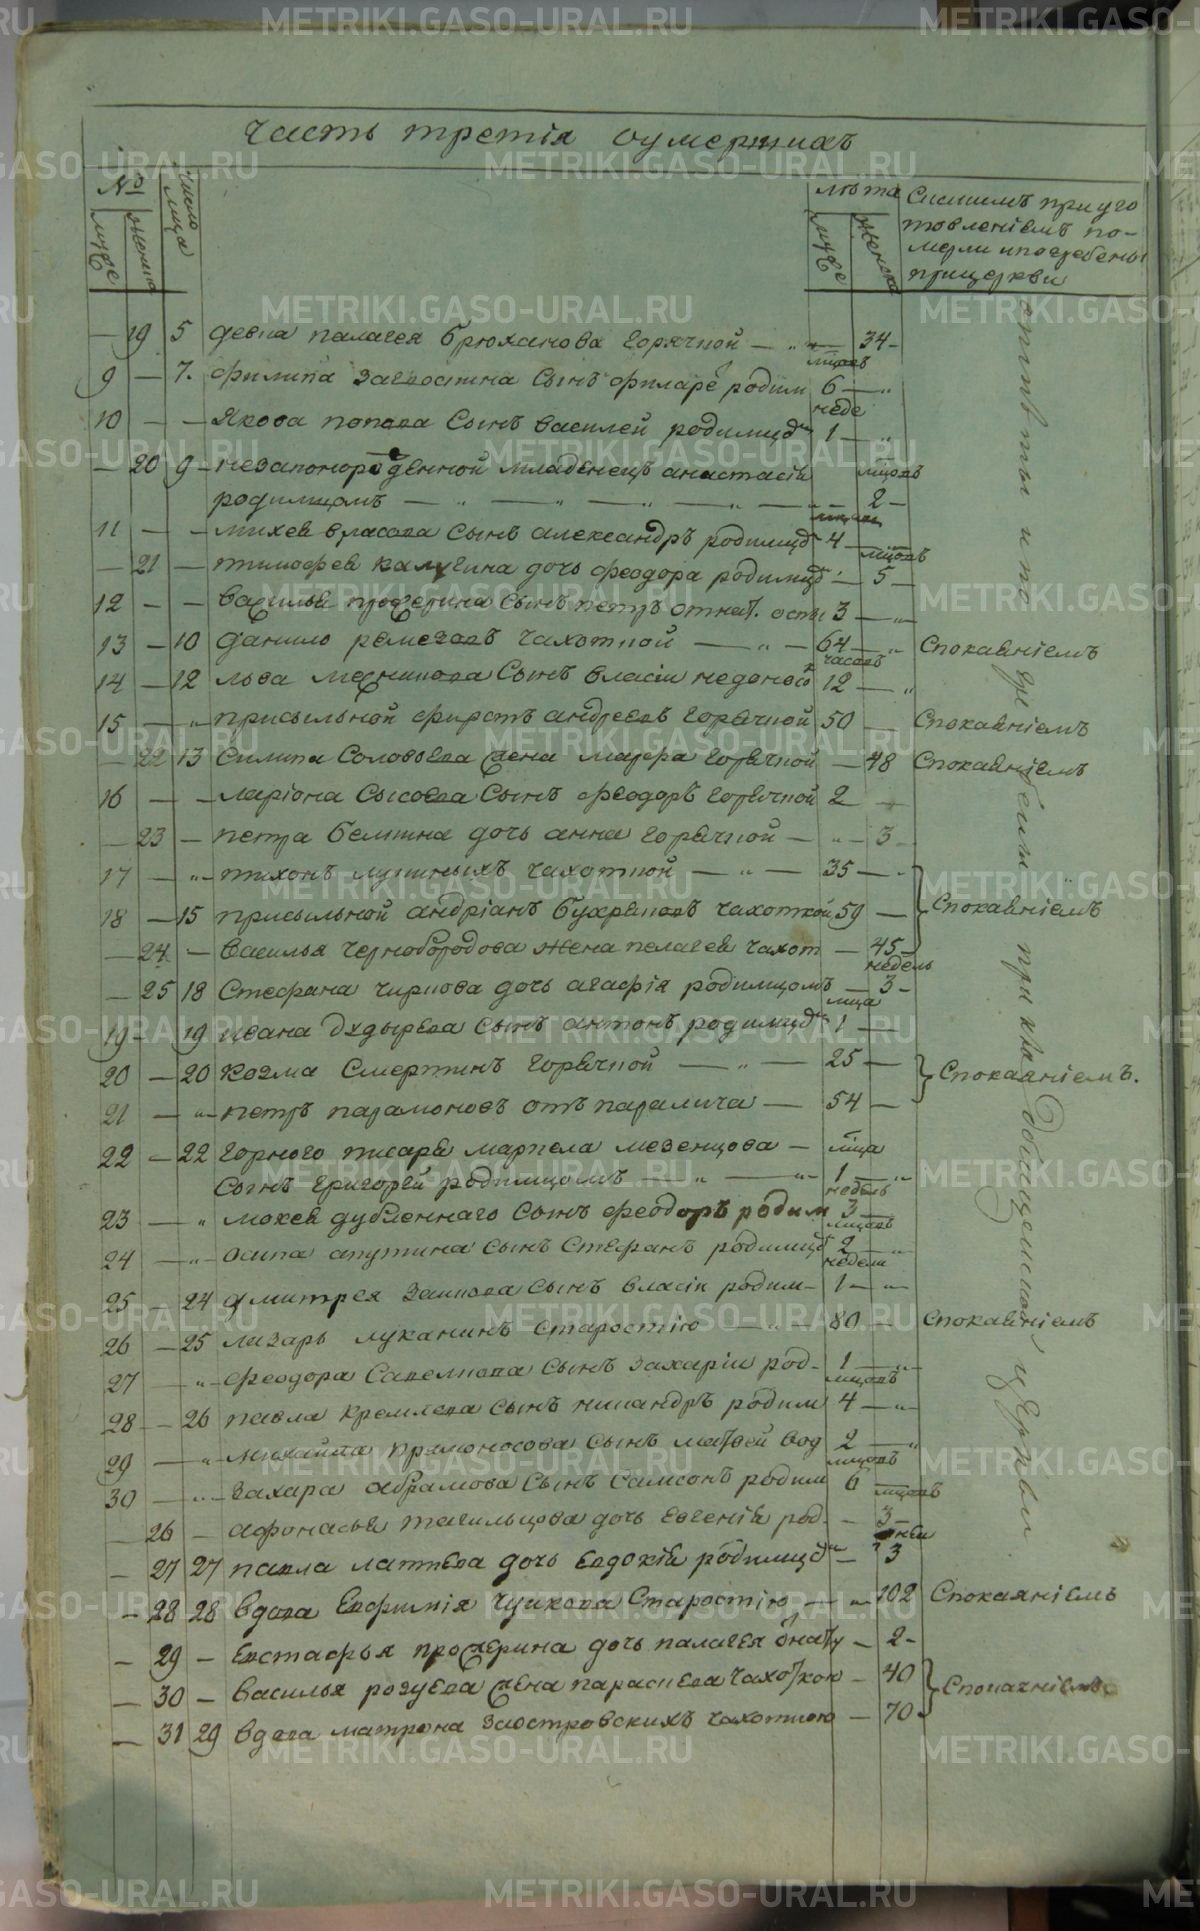 часть третія оумершихъ
№
число мца
муже
женска
лѣта
муже
женска
Скакимъ приуго
товленіемъ по-
мерли ипогребены
прицеркви
— 19 5 девка палагея брюханова горячкой — „ — 34 —
мцовъ
9 — 7. филипа загвоскина Сынъ филаре родим 6 — „
неде
10 — — Якова попова Сынъ василей родимцо 1 — „
— 20 9 — незаконорожденной младенецъ анастасія
мцовъ
родимцомъ — „ — „ — „ — „ — 2 —
11 — — михея власова Сынъ александръ родимцо 4 —
мцовъ
— 21 — тимофея калугина дочь феодора родимцо — 5 —
12 — — василья прожерина Сынъ петръ отнат. оспы 3 — „
13 — 10 данило ремезовъ чахоткой — „ — 64 — „ Спокаяніемъ
часовъ
14 — 12 льва мехникова Сынъ власіи недоноско 12 — „
15 — „ — присыльной фирстъ андреевъ горячкой 50 — Спокаяніемъ
— 22 13 Силипа Соловьева жена марфа горячкой — 48 Спокаяніемъ
16 — — ларіона Сысоева Сынъ феодоръ горячкой 2 —
— 23 — петра белкина дочь анна горячкой — „ — 3 —
17 — „ — тихонъ лупиныхъ чахоткой — „ — 35 — „
18 — 15 присыльной андріанъ бухряковъ чахоткой 59 — Спокаяніемъ
— 24 — василья чернобородова жена пелагея чахот — 45 —
недель
— 25 18 Стефана чиркова дочь агафія родимцомъ — 3 —
мца
19 — 19 ивана дедырева Сынъ антонъ родимцо 1 —
20 — 20 козма Смертинъ горячкой — „ — 25 — Спокаяніемъ.
21 — „ — петръ парамоновъ отъ паралича — 54 —
22 — 22 горного писаря маркела мезенцова — мца
Сынъ григорей родимцомъ — „ — „ — 1 — „
недель
23 — „ мокея дубленнаго Сынъ феодоръ родим 3 —
мцовъ
24 — „ — осипа апутина Сынъ Стефанъ родимцо 2 — „
недели
25 — 24 дмитрея заикова Сынъ власіи родим — 1 — „
26 — 25 лазарь луканинъ Старостію — „ — 80 — Спокаяніемъ
27 — „ — феодора Савелкова Сынъ захаріи род — 1 — „
мцовъ
28 — 26 павла кремлева Сынъ никандръ родим 4 — „
29 — „ — михайла прямоносова Сынъ матвей вод 2 — „
мцовъ
30 — „ — захара абрамова Сынъ Самсонъ родим 6 —
мцовъ
— 26 — афонасья тагильцова дочь евгенія род. — 3 —
дней
— 27 27 павла лаптева дочь евдокія родимцо — 3
— 28 28 вдова Евфимія чункова Старостію — „ 102 Спокаяніемъ
— 29 — Евстафья прожерина дочь палагея — 2 —
— 30 — василья розуева жена параскева чахоткою — 40 Спокаяніемъ
— 31 29 вдова матрона заостровскихъ чахоткою — 70 —
отпеты и погребены при кладбищенской церкви
METRIKI.GASO-URAL.RU